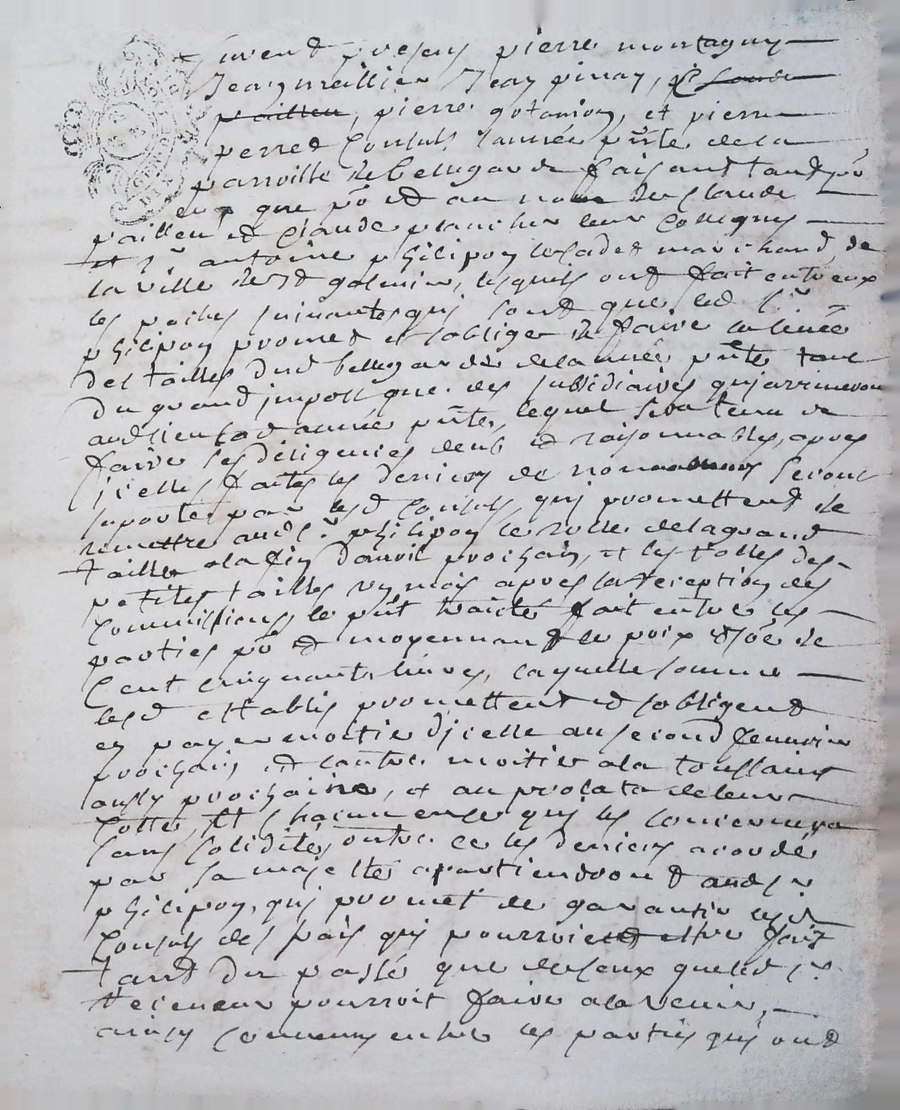 furent presens pierre montagny
Jean meillier Jean pinay, Claude
pailleu, pierre gotamion, et pierre
perret Consuls lannée pnte dela
parroisse de bellegarde faisant tand po
eux que po et au nom de Claude
pailleu et Claude plancher leur Consuls
et Sr antoine philipon le Cadet marchand de
la ville de St galmier, lesquels ont fait entreux
les pactes suivantes qui sont que led Sr
philipon promet et soblige de faire la levée
des tailles dud bellegarde delannée pnte tant
du grand impost que des subsidiaires qui arriveron
aud lieu lad année pnte, lequel sera tenu de
faire les diligences deub et raisonnables, apres
jcelles faites les deniers de non seront
suportés par lesd Consuls, qui promettent de
remettre aud Sr philipon le rolle dela grand
taille ala fin davril prochain, et les rolles des
petites tailles un mois apres la reception des
Commissions, le pnt traité fait entre les
parties po et moyennant le prix et soe de
Cent cinquante livres, laquelle somme
lesd establis promettent et sobligent
en payer moitié dicelle au second fevrier
prochain, et lautre moitier ala toussaint
aussy prochaine, et au prolata deleur
Cotte, et chacun ence qui les concernera
sans solidité, outre ce les deniers acordés
par sa majesté apartiendront aud Sr
philipon, qui promet de garantir lesd
Consuls des frais qui pourroient estre faits
tand du passé que deceux queled Sr
receveur pourroit faire alavenir,
ainsy Convenu entre les parties qui ont